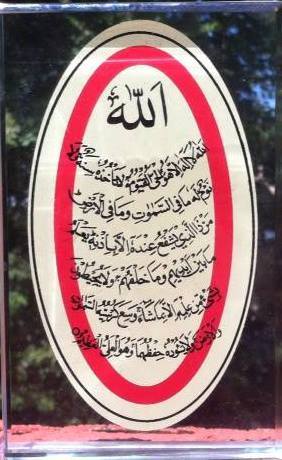 الله
الله لا اله الا هو الحي القيوم لا تأخذه سنة ولا
نوم له ما في السموت وما في الارض
من ذا الذي يشفع عنده الا باذنه يعلم
ما بين ايديهم وما خلفهم ولا يحيطون
بشيء من علمه الا بما شاء وسع كرسيه السموت
والارض ولا يؤده حفظهما وهو العلي العظيم